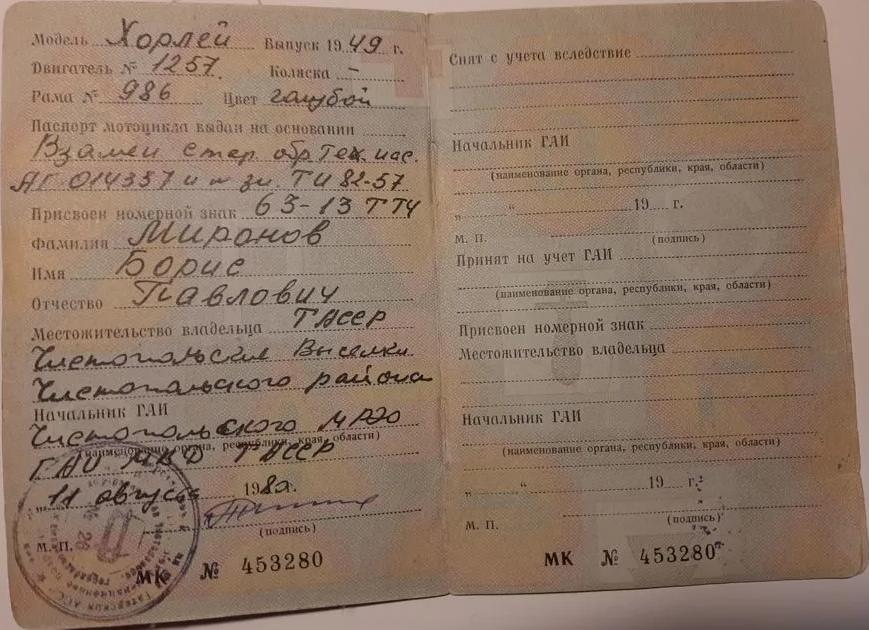 Модель Хорлей Выпуск 1949 г.
Двигатель № 1257. Коляска –
Рама № 986 Цвет голубой
Паспорт мотоцикла выдан на основании
Взамен стар. обр. Тех. пас.
АГ 014357 и н зн. ТИ 82-57
Присвоен номерной знак 63-13 ТТЧ
Фамилия Миронов
Имя Борис
Отчество Павлович
Местожительство владельца ТАССР
Чистопольские Выселки
Чистопольского района
Начальник ГАИ
Чистопольского МРЭО
(наименование органа, республики, края, области)
ГАИ МВД ТАССР
„11 августа 198 г.
(подпись)
М. П.
№ 26
МК № 453280
Снят с учета вследствие
Начальник ГАИ
(наименование органа, республики, края, области)
„ “ 19 г.
М. П. (подпись)
Принят на учет ГАИ
(наименование органа, республики, края, области)
Присвоен номерной знак
Местожительство владельца
Начальник ГАИ
(наименование органа, республики, края, области)
„ “ 19 г.
М. П. (подпись)
МК № 453280